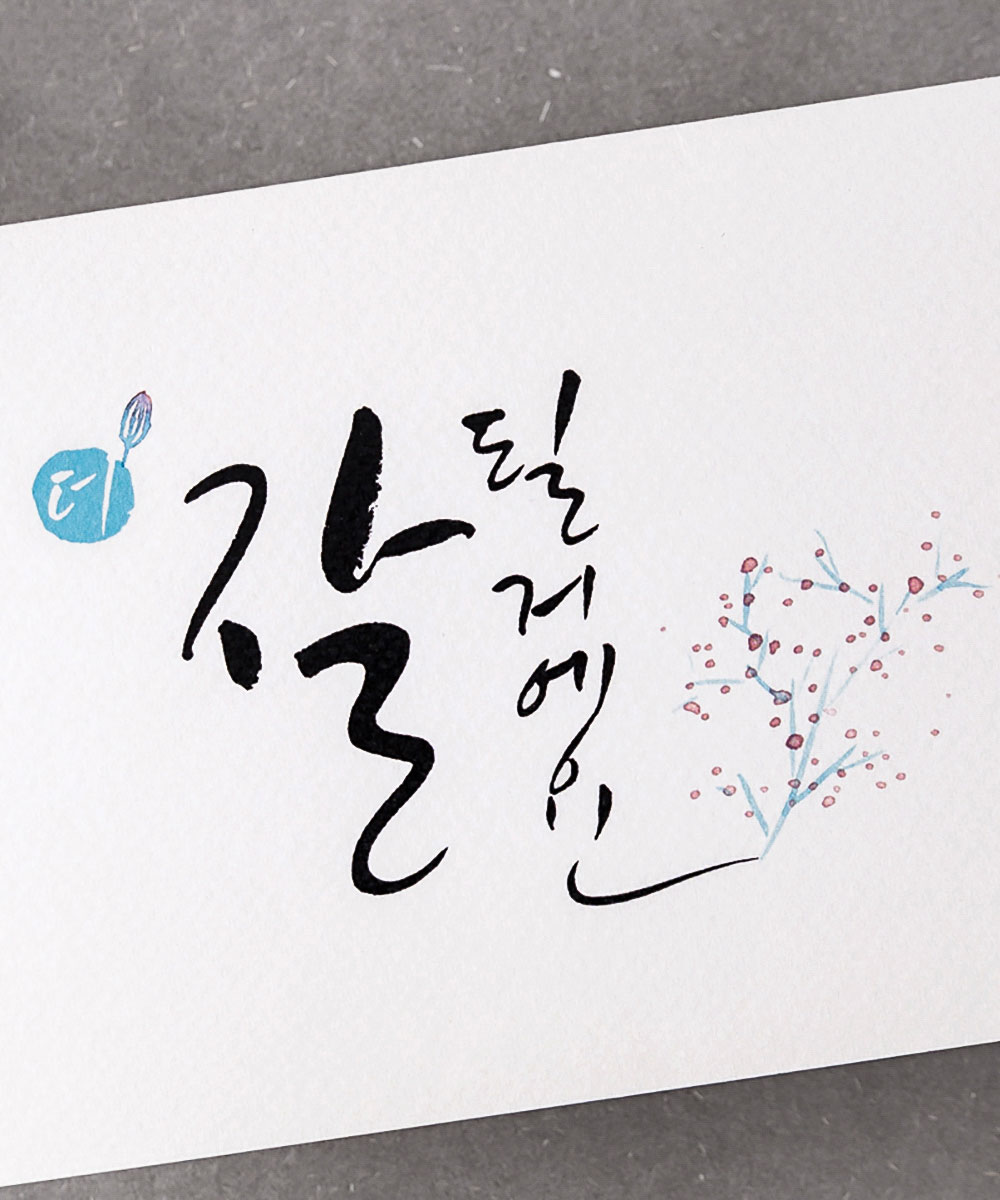 더
잘
될거에요